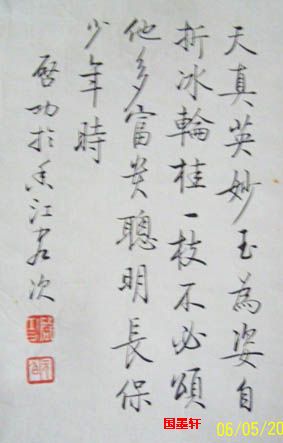 天真英妙玉為姿自
折冰輪桂一枝不必頌
他多富贵聰明長保
少年時
啓功於香江客次
國美轩
06/05/20